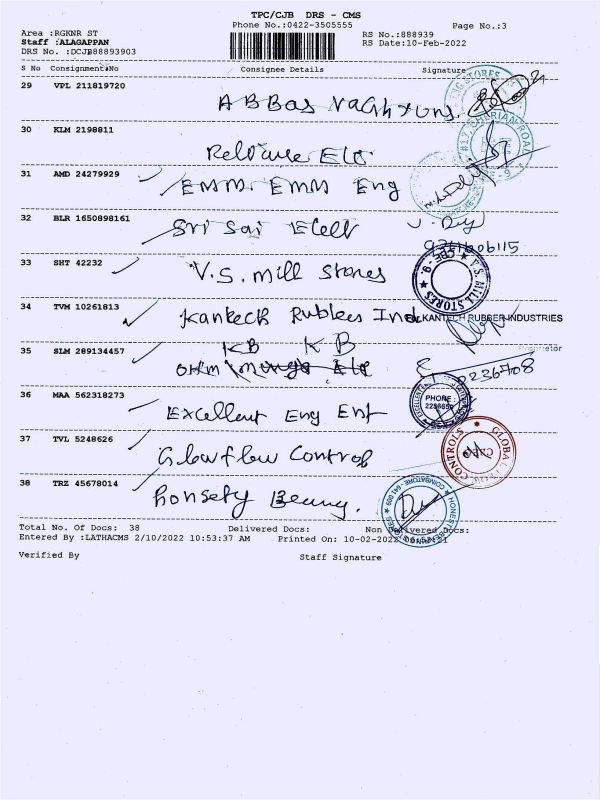 TPC/CJB DRS - CMS
Phone No.:0422-3505555
Page No.:3
Area :RGKNR ST
RS No.:888939
Staff :ALAGAPPAN
RS Date:10-Feb-2022
DRS No. :DCJB88893903
S No Consignment No Consignee Details Signature
29 VPL 211819720
ABBas
30 KLM 2198811
Reliance Ele
31 AMD 24279929
EMM EMM Eng
32 BLR 1650898161
Sri Sai Elect
33 SHT 42232
V.S. Mill Stores
V.S. MILL STORES
CBE-9.
34 TVM 10261813
Kanteck Rubbers Ind
KANTECH RUBBER INDUSTRIES
Proprietor
35 SLM 289134457
KB KB
2236708
36 MAA 562318273
Excellent Eng Ent
PHONE:
37 TVL 5248626
Glowflow Control
CONTROLS
38 TRZ 45678014
COIMBATORE - 641 009
Total No. Of Docs: 38 Delivered Docs: Non Delivered Docs:
Entered By :LATHACMS 2/10/2022 10:53:37 AM Printed On: 10-02-2022
Verified By Staff Signature